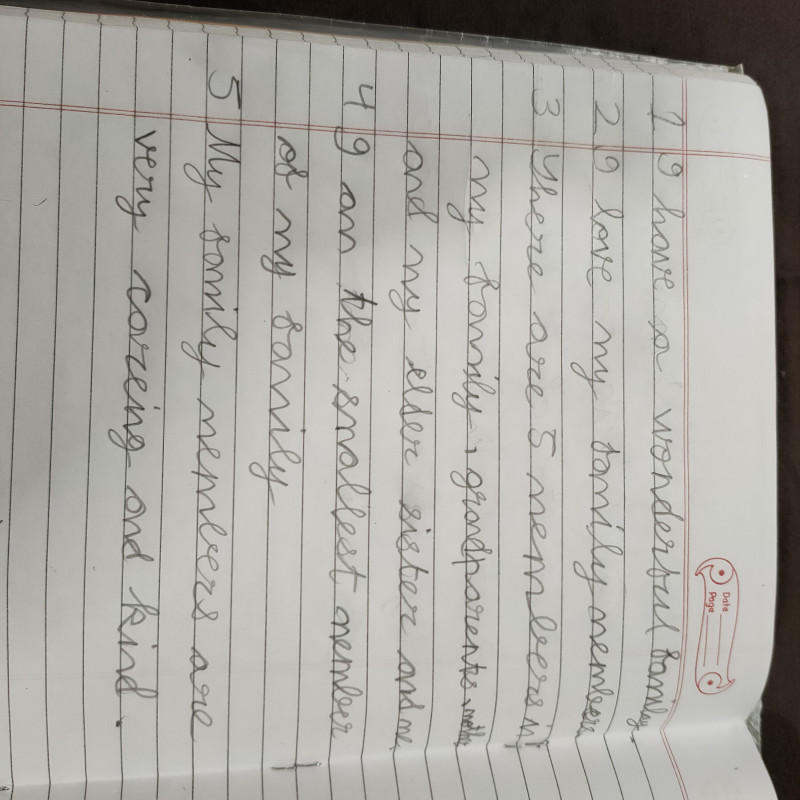 Date
Page
1 I have a wonderful family.
2 I love my family members
3 There are 5 members in
my family, grandparents, mother
and my elder sister and me
4 I am the smallest member
of my family
5 My family members are
very careing and kind.